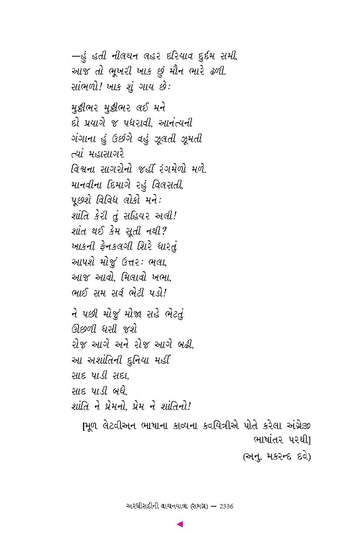 —હું હતી નીલઘન લહર દરિયાવ દુર્દમ સમી,
આજ તો ભૂખરી ખાક છું મૌન ભારે ઢળી.
સાંભળો! ખાક શું ગાય છેઃ
મુઠ્ઠીભર મુઠ્ઠીભર લઈ મને
દો પ્રયાગે જ પધરાવી, આનંત્યની
ગંગાના હું ઉછંગે વહું ઝૂલતી ઝૂમતી
ત્યાં મહાસાગરે
વિશ્વના સાગરોનો જહીં રંગમેળો મળે.
માનવીના દિમાગે રહું વિલસતી,
પૂછશે વિવિધ લોકો મનેઃ
શાંતિ કેરી તું સહિયર અલી!
શાંત થઈ કેમ સૂતી નથી?
ખાકની ફેનકલગી શિરે ધારતું
આપશે મોજું ઉત્તરઃ ભલા,
આજ આવો, મિલાવો ખભા,
ભાઈ સમ સર્વ ભેટી પડો!
ને પછી મોજું મોજા સહે ભેટતું
ઊછળી ધસી જશે
રોજ આગે અને રોજ આગે બઢી,
આ અશાંતિની દુનિયા મહીં
સાદ પાડી સદા,
સાદ પાડી બધે,
શાંતિ ને પ્રેમનો, પ્રેમ ને શાંતિનો!
[મૂળ લેટવીઅન ભાષાના કાવ્યના કવયિત્રીએ પોતે કરેલા અંગ્રેજી
ભાષાંતર પરથી]
(અનુ. મકરન્દ દવે)
અરધીસદીની વાચનયાત્રા (સમગ્ર) — 2336